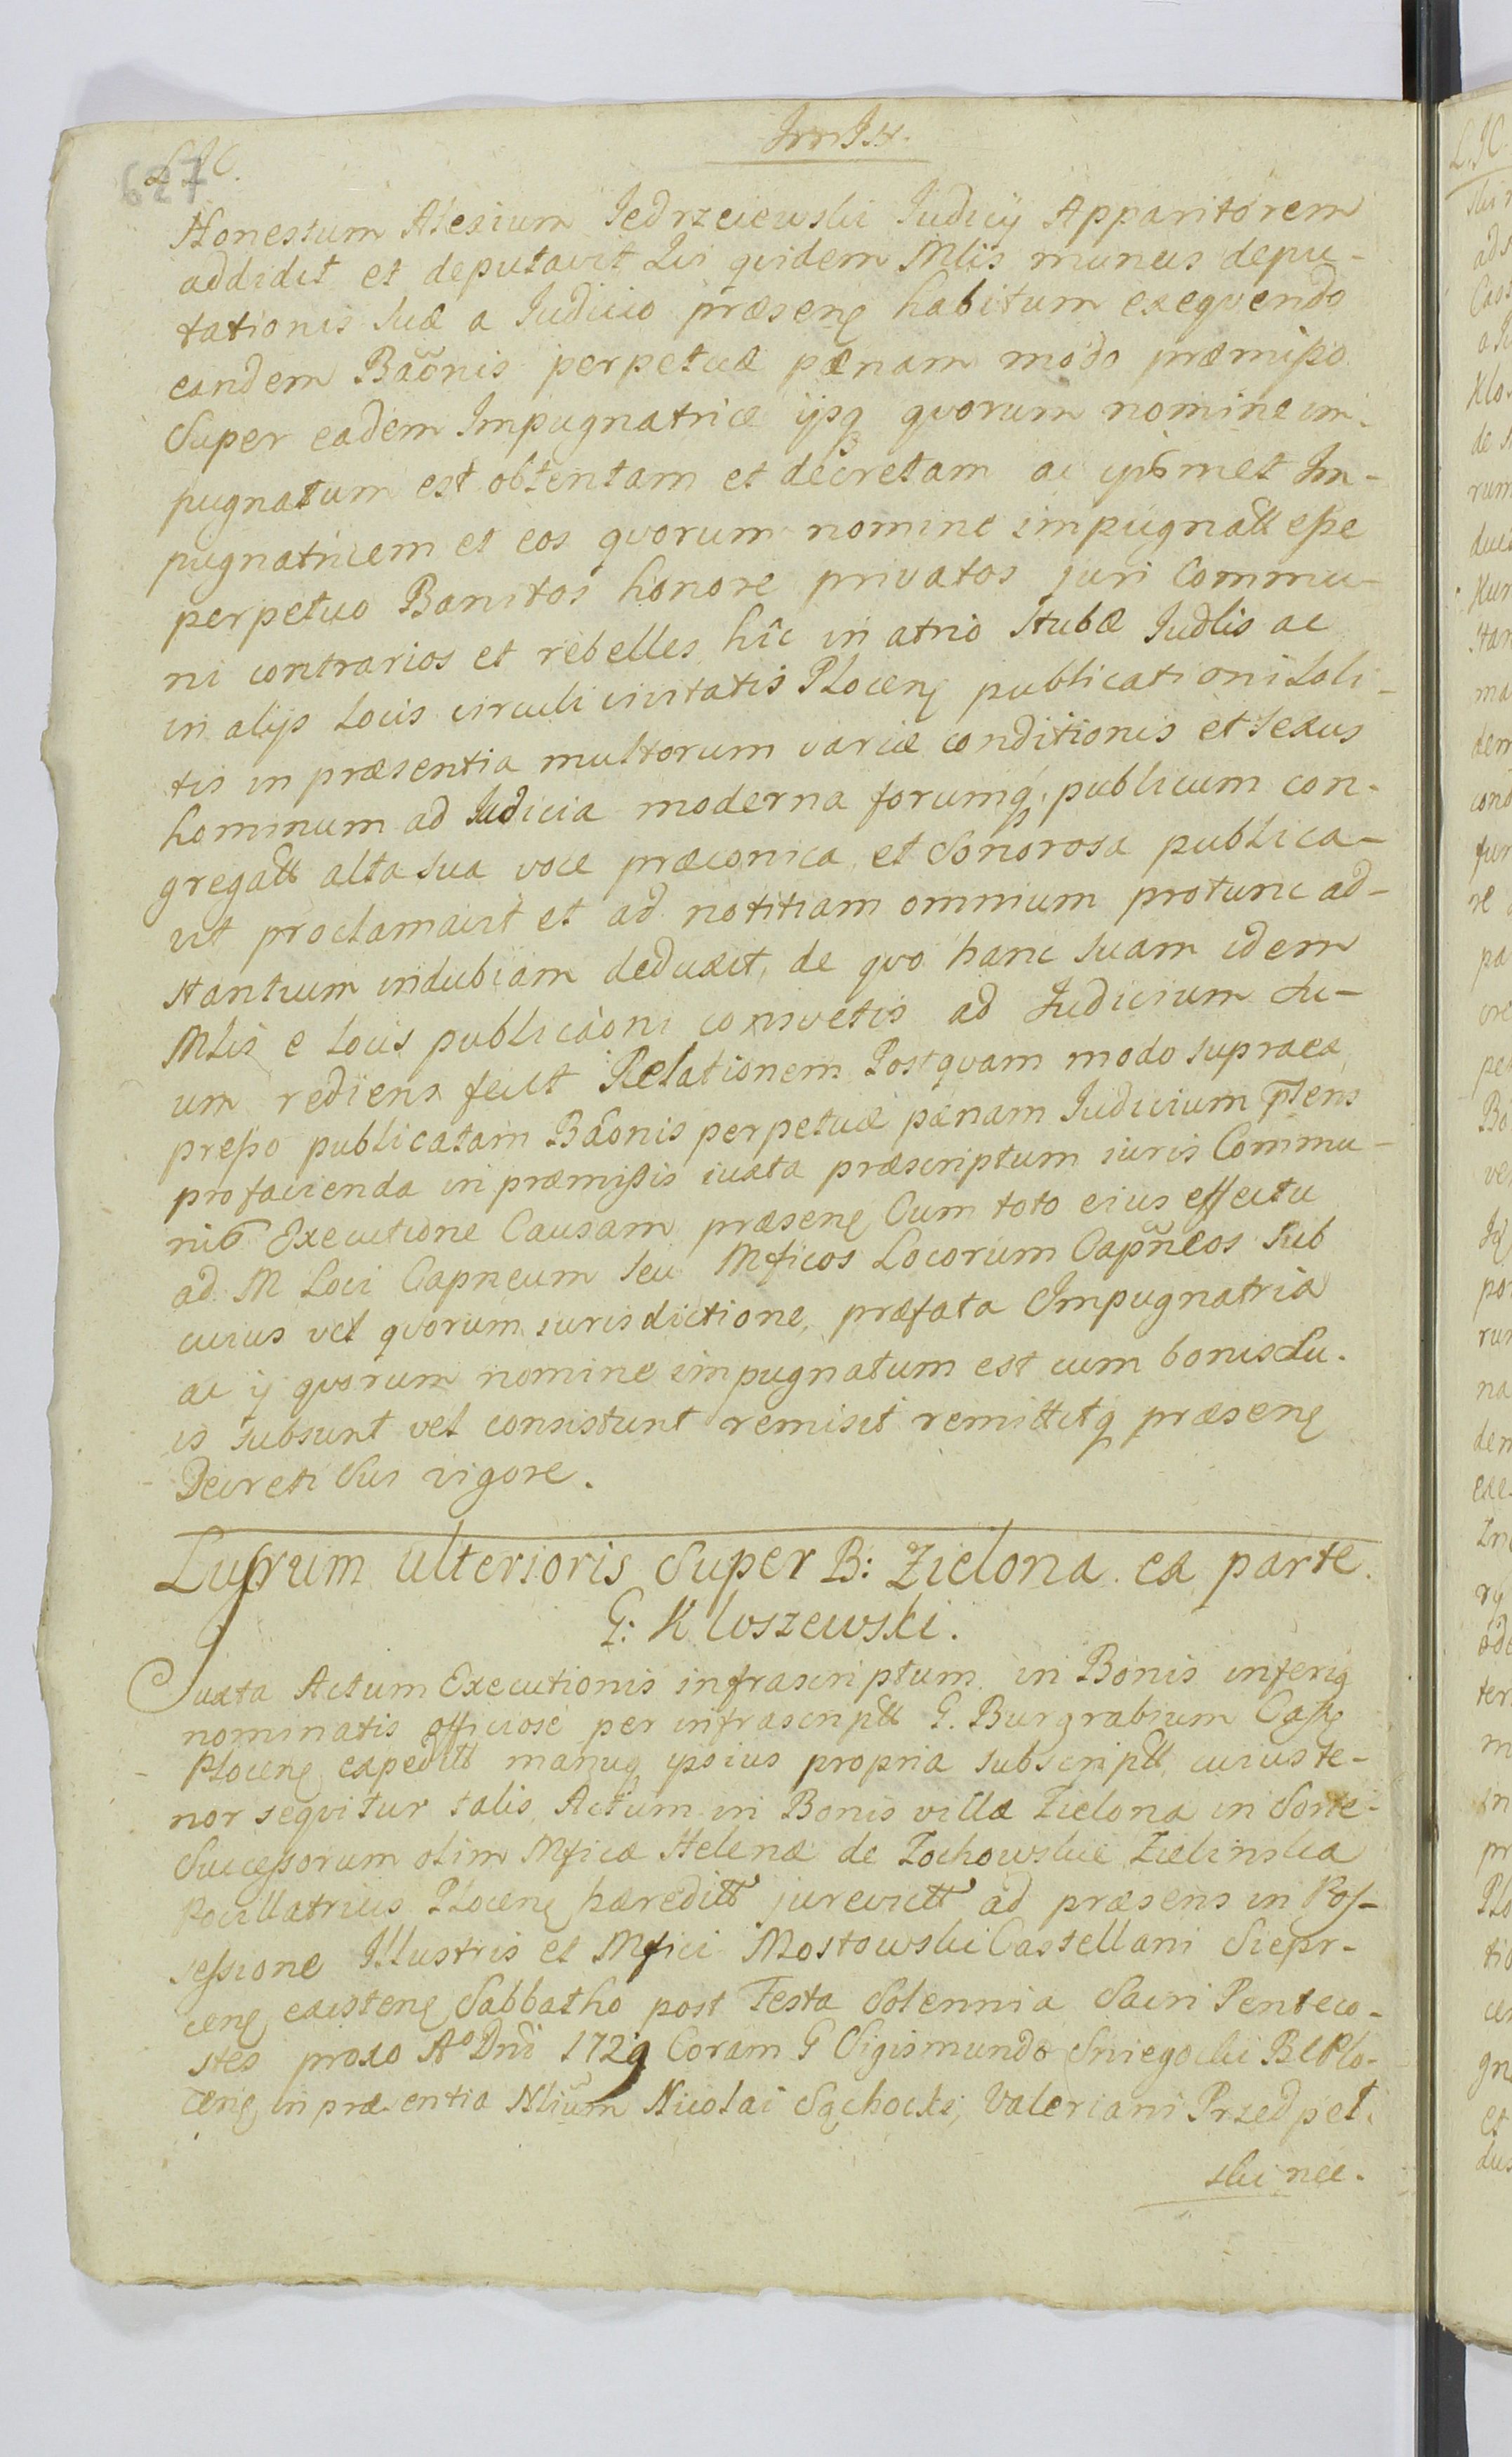 L. J. C.
627
Honestum Alexium Jedrzeiewski Judicij Apparitorem
addidit et deputavit Qui quidem Mlis munus depu-
tationis suæ a Judicio præsenę habitum exequendo
eandem Baõnis perpetuæ pænam modo præmisso
Super eadem Impugnatrice ijsq quorum nomine im-
pugnatum est obtentam et decretam ac ipsmet Im-
pugnatricem et eos quorum nomine impugnatt esse
perpetuo Banitos honore privatos juri Commu-
ni contrarios et rebelles hîc in atrio Stubæ Judlis ac
in alijs Locis circuli civitatis Plocenę publicationi Soli-
tis in præsentia multorum variæ conditionis et sexus
hominum ad Judicia moderna forumq; publicum con-
gregatt alta sua voce præconica et Sonorosa publica-
vit proclamavit et ad notitiam omnium protunc ad-
stantium indubiam deduxit, de quo hanc suam idem
Mlis e locis publicãoni consvetis ad Judicium Su-
um rediens fecit Relationem Postquam modo supraex
presso publicatam Baõnis perpetuæ pænam Judicium p̃tens
pro facienda in præmissis iuxta præscriptum iuris Commu-
nis Executione Causam præsenę Cum toto eius effectu
ad M Loci Capneum seu Mficos Locorum Capñeos Sub
cuius vel quorum iurisdictione, præfata Impugnatrix
ac ij quorum nomine impugnatum est cum bonis Su-
is subsunt vel consistunt remisit remittitq præsenę
Decreti Sui vigore.
Lussum ulterioris Super B: Zielona ex parte
G: Kloszewski.
Juxta Actum Executionis infrascriptum in Bonis inferiq
nominatis officiose per infrascriptt G. Burgrabium Cassę
Plocenę expeditt manuq ipsius propria subscriptt cuius te-
nor sequitur talis Actum in Bonis villæ Zielona in Sorte
Successorum olim Mficæ Helenæ de Zochowskie Zielinska
Pocillatricis Plocenę hæreditt jurevictt ad præsens in Pos-
sessione Illustris et Mfici Mostowski Castellani Siepr-
cenę existenę Sabbatho post Festa Solennia Sacri Penteco-
stes proxo Aº Dni 1729 Coram G Sigismundo Sniegocki B C Plo-
cenę in præsentia Nlium Nicolai Sąchocki, Valeriani Przedpel-
ski nec.